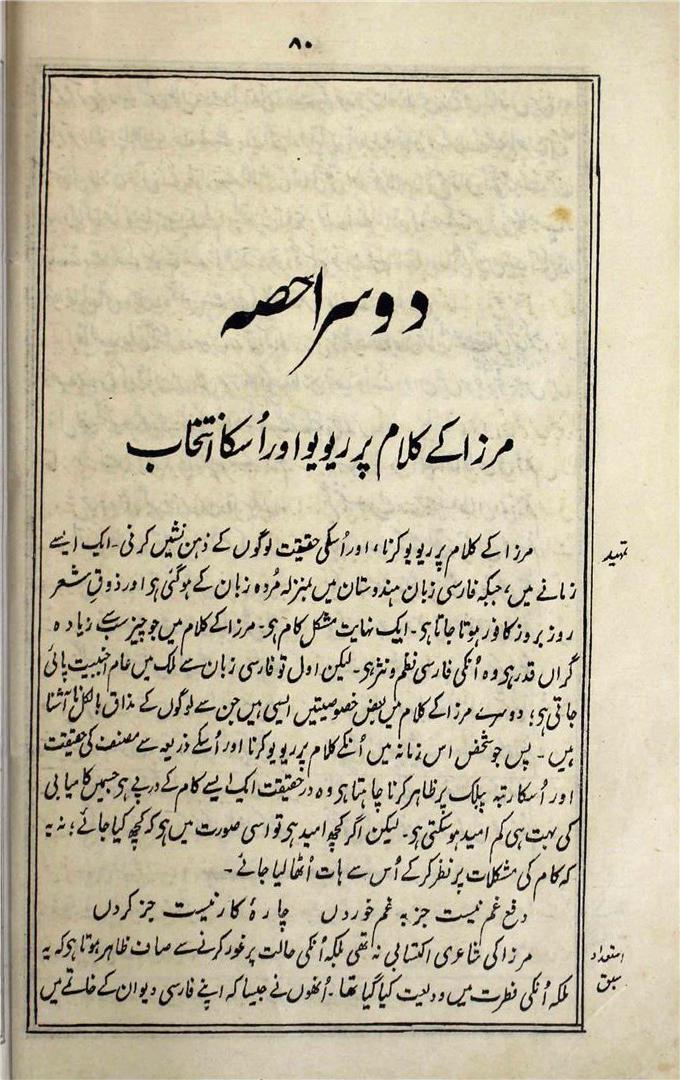 ۸۰
دوسرا حصہ
مرزا کے کلام پر ریویو اور اُسکا انتخاب
تمہید
مرزا کے کلام پر ریویو کرنا، اور اُسکی حقیقت لوگوں کے ذہن نشیں کرنی۔ ایک ایسے
زمانے میں، جبکہ فارسی زبان ہندوستان میں بمنزلہ مُردہ زبان کے ہوگئی ہو اور ذوقِ شعر
روز بروز کافور ہوتا جاتا ہو۔ ایک نہایت مشکل کام ہو۔ مرزا کے کلام میں جو چیز سب سے زیادہ
گراں قدر ہو وہ اُنکی فارسی نظم و نثر ہو۔ لیکن اول تو فارسی زبان سے ملک میں عام اجنبیت پائی
جاتی ہو؛ دوسرے مرزا کے کلام میں بعض خصوصیتیں ایسی ہیں جن سے لوگوں کے مذاق بالکل نا آشنا
ہیں۔ پس جو شخص اس زمانہ میں اُنکے کلام پر ریویو کرنا اور اُسکے ذریعہ سے مصنف کی حقیقت
اور اُسکا رتبہ پبلک پر ظاہر کرنا چاہتا ہو وہ درحقیقت ایک ایسے کام کے درپے ہو جسمیں کامیابی
کی بہت ہی کم امید ہوسکتی ہو۔ لیکن اگر کچھ امید ہو تو اسی صورت میں ہو کہ کچھ کیا جائے؛ نہ یہ
کہ کام کی مشکلات پر نظر کرکے اُس سے ہات اُٹھا لیا جائے۔
دفعِ غم نیست جز بہ غم خوردن چارۂ کار نیست جز کردن
استعداد
مرزا کی شاعری اکتسابی نہ تھی بلکہ اُنکی حالت پر غور کرنے سے صاف ظاہر ہوتا ہو کہ یہ
بلکہ اُنکی فطرت میں ودیعت کیا گیا تھا۔ اُنھوں نے جیسا کہ اپنے فارسی دیوان کے خاتمے میں